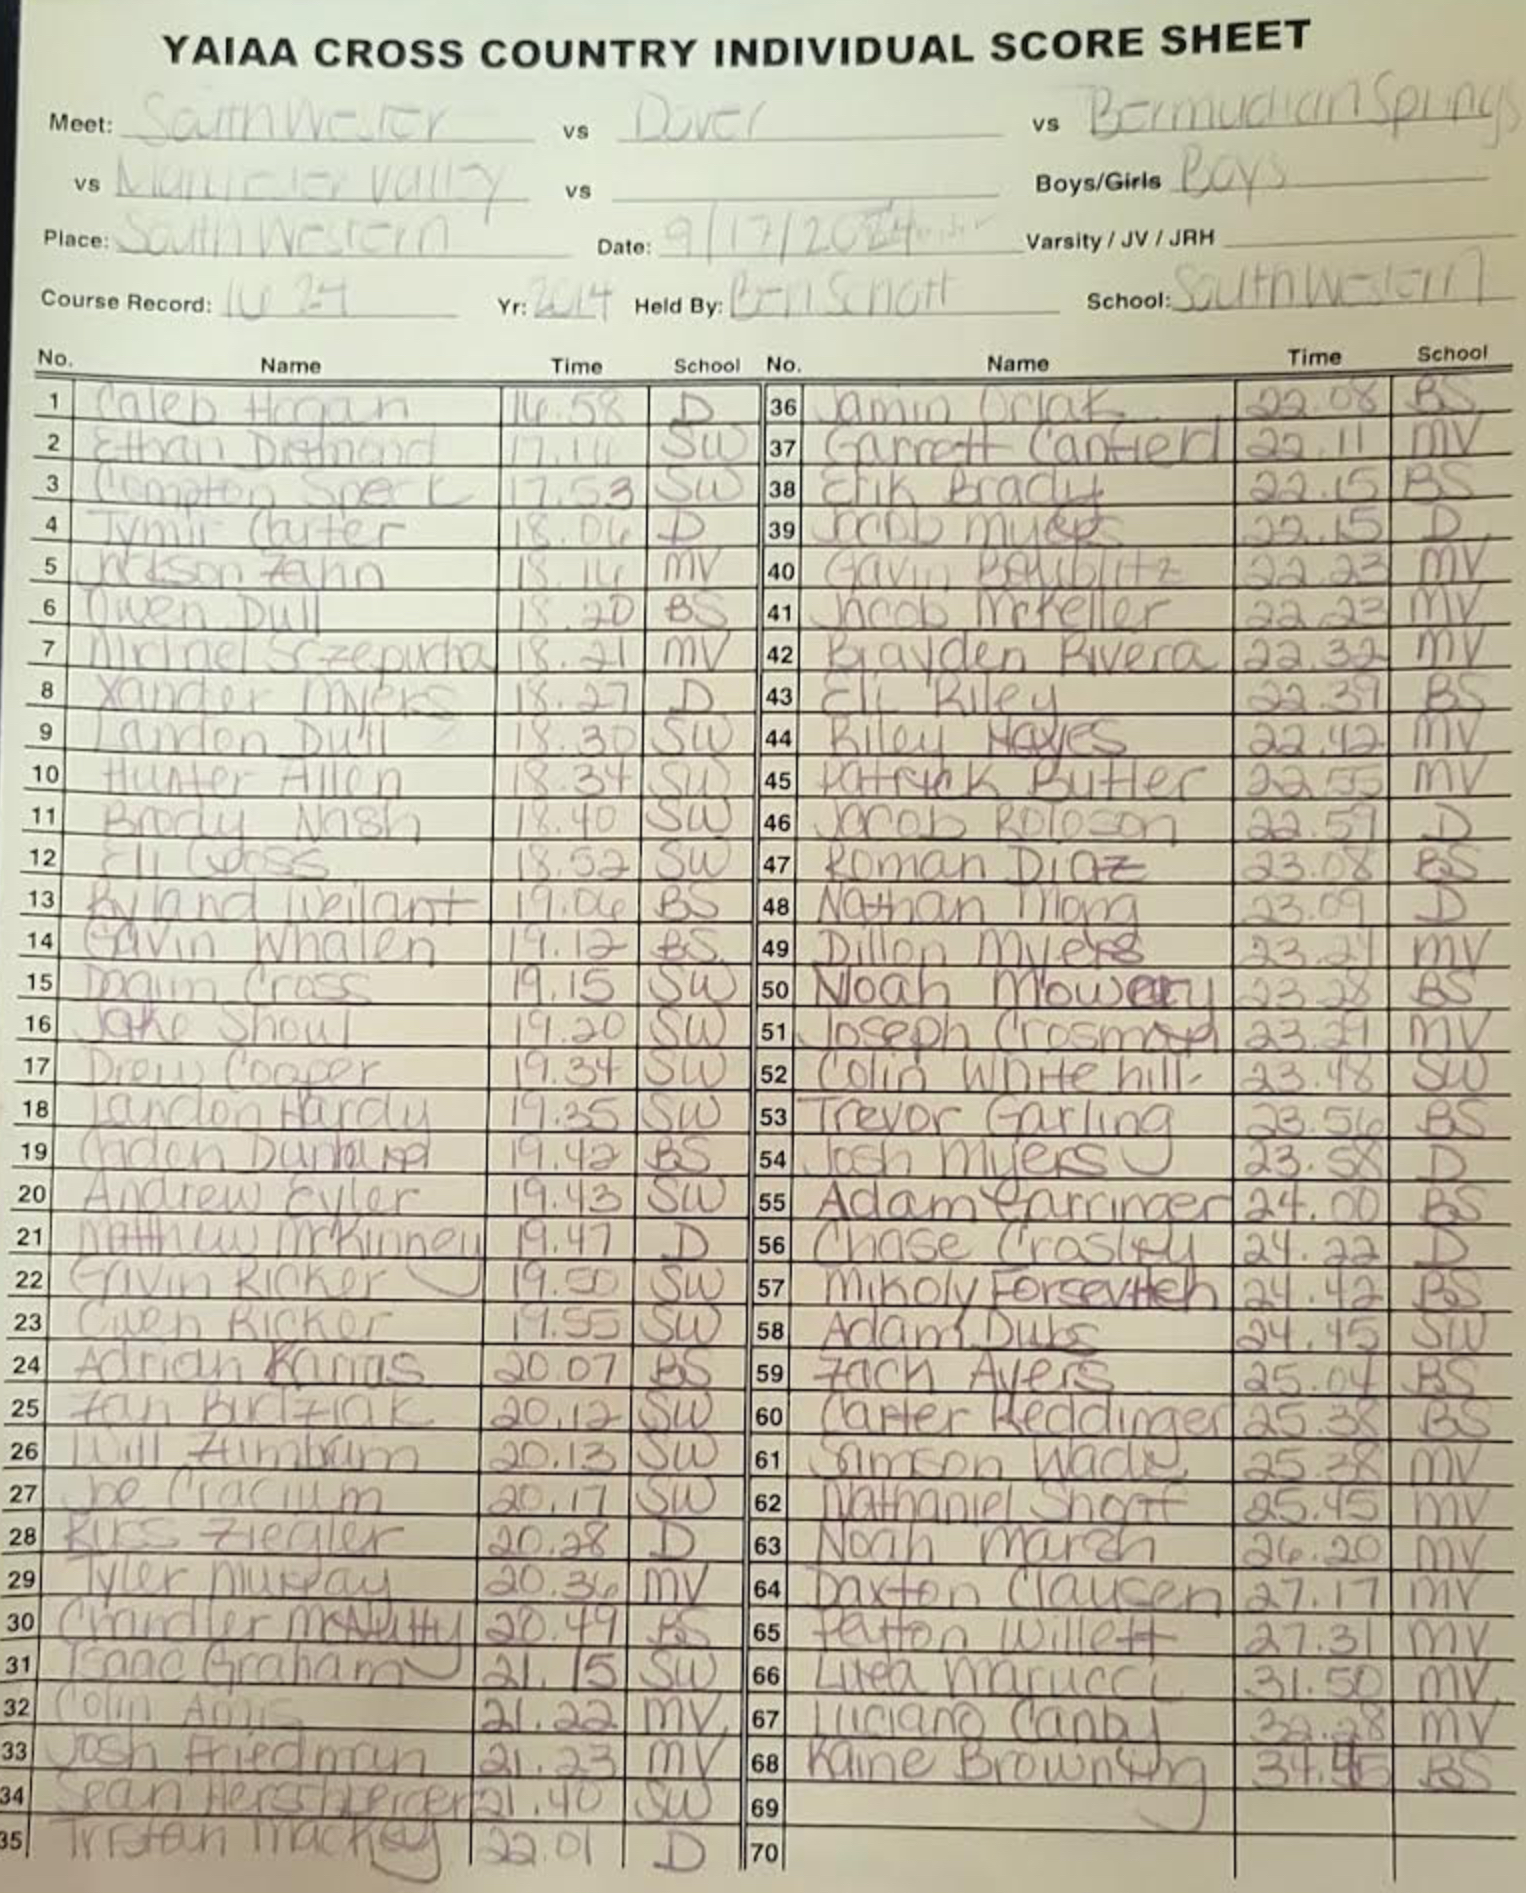 YAIAA CROSS COUNTRY INDIVIDUAL SCORE SHEET
Meet: South Wester vs Dover vs Bermudian Springs
vs Manchester Valley vs Boys/Girls Boys
Place: South Western Date: 9/17/2024 Varsity / JV / JRH
Course Record: Yr: 2014 Held By: Ben Schott School: South Western
No. Name Time School No. Name Time School
1 Caleb Hogan 16.58 D 36 Jamin 22.08 BS
2 Ethan Diamond SW 37 Garrett Canfield 22.11 MV
3 Compton Speck 17.53 SW 38 Erik Brady 22.15 BS
4 Tymir Carter 18.06 D 39 Jacob Myers 22.15 D
5 Jackson Zahn 18.16 MV 40 Gavin Boublitz 22.23 MV
6 Owen Dull 18.20 BS 41 Jacob McKeller 22.23 MV
7 Michael 18.21 MV 42 Brayden Rivera 22.32 MV
8 Xander Myers 18.27 D 43 Eli Riley 22.39 BS
9 Landon Dull 18.30 SW 44 Riley Hayes 22.42 MV
10 Hunter Allen 18.34 SW 45 Patrick Butler 22.55 MV
11 Brody Nash 18.40 SW 46 Jacob Roloson 22.59 D
12 Eli Cross 18.52 SW 47 Roman Diaz 23.08 BS
13 Ryland Weilant 19.06 BS 48 Nathan Mong 23.09 D
14 Gavin Whalen 19.12 BS 49 Dillon Myers MV
15 Cross 19.15 SW 50 Noah Mowery 23.28 BS
16 Jake Shoul 19.20 SW 51 Joseph Crosman 23.29 MV
17 Drew Cooper 19.34 SW 52 Colin Whitehill 23.48 SW
18 Landon Hardy 19.35 SW 53 Trevor Garling 23.56 BS
19 Caden 19.42 BS 54 Josh Myers 23.58 D
20 Andrew Eyler 19.43 SW 55 Adam 24.00 BS
21 Matthew McKinney 19.47 D 56 Chase Crosley 24.22 D
22 Gavin Ricker 19.50 SW 57 Mikoly 24.42 BS
23 Owen Ricker 19.55 SW 58 Adam Dubs 24.45 SW
24 Adrian Karras 20.07 BS 59 Zach Ayers 25.04 BS
25 Zan Budziak 20.12 SW 60 Carter Reddinger 25.38 BS
26 Will Zumbrum 20.13 SW 61 Simson Wade 25.38 MV
27 Joe Cracium 20.17 SW 62 Nathaniel Shoff 25.45 MV
28 Russ Ziegler 20.28 D 63 Noah Marsh 26.20 MV
29 Tyler Murray 20.36 MV 64 Daxton Clausen 27.17 MV
30 Chandler McNutty 20.49 BS 65 Peyton Willett 27.31 MV
31 Isaac Graham 21.15 SW 66 Luca Marucci 31.50 MV
32 Colin Amis 21.22 MV 67 Luciano Canby 32.28 MV
33 Josh Friedman 21.23 MV 68 Kaine Browning BS
34 Sean Hershberger 21.40 SW 69
35 Tristan Mackey 22.01 D 70